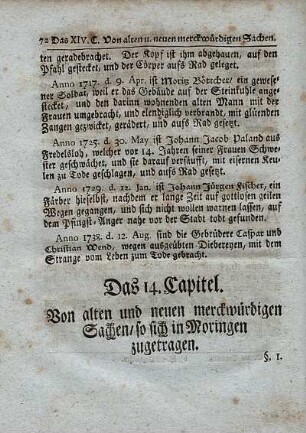 72 Das XIV. C. Von alten u. neuen merckwürdigen Sachen.
ten geradebrachet. Der Kopf ist ihm abgehauen, auf den
Pfahl gestecket, und der Cörper aufs Rad geleget.
Anno 1717. d. 9. Apr. ist Moritz Böttcher/ ein gewese-
ner Soldat, weil er das Gebäude auf der Steinkuhle ange-
stecket, und den darinn wohnenden alten Mann mit der
Frauen umgebracht, und elendiglich verbrandt, mit glüenden
Zangen gezwicket, gerädert, und aufs Rad gesetzt.
Anno 1725. d. 30. May ist Johann Jacob Paland aus
Fredelsloh, welcher vor 14. Jahren seiner Frauen Schwe-
ster geschwächet, und sie darauf versäufft, mit eisernen Keu-
len zu Tode geschlagen, und aufs Rad gesetzt.
Anno 1729. d. 12. Jan. ist Johann Jürgen Fischer, ein
Färber hieselbst, nachdem er lange Zeit auf gottlosen geilen
Wegen gegangen, und sich nicht wollen warnen lassen, auf
dem Pfingst-Anger nahe vor der Stadt todt gefunden.
Anno 1738. d. 12. Aug. sind die Gebrüdere Caspar und
Christian Wend, wegen ausgeübten Diebereyen, mit dem
Strange vom Leben zum Tode gebracht.
Das 14. Capitel.
Von alten und neuen merckwürdigen
Sachen/ so sich in Moringen
zugetragen.
§. 1.